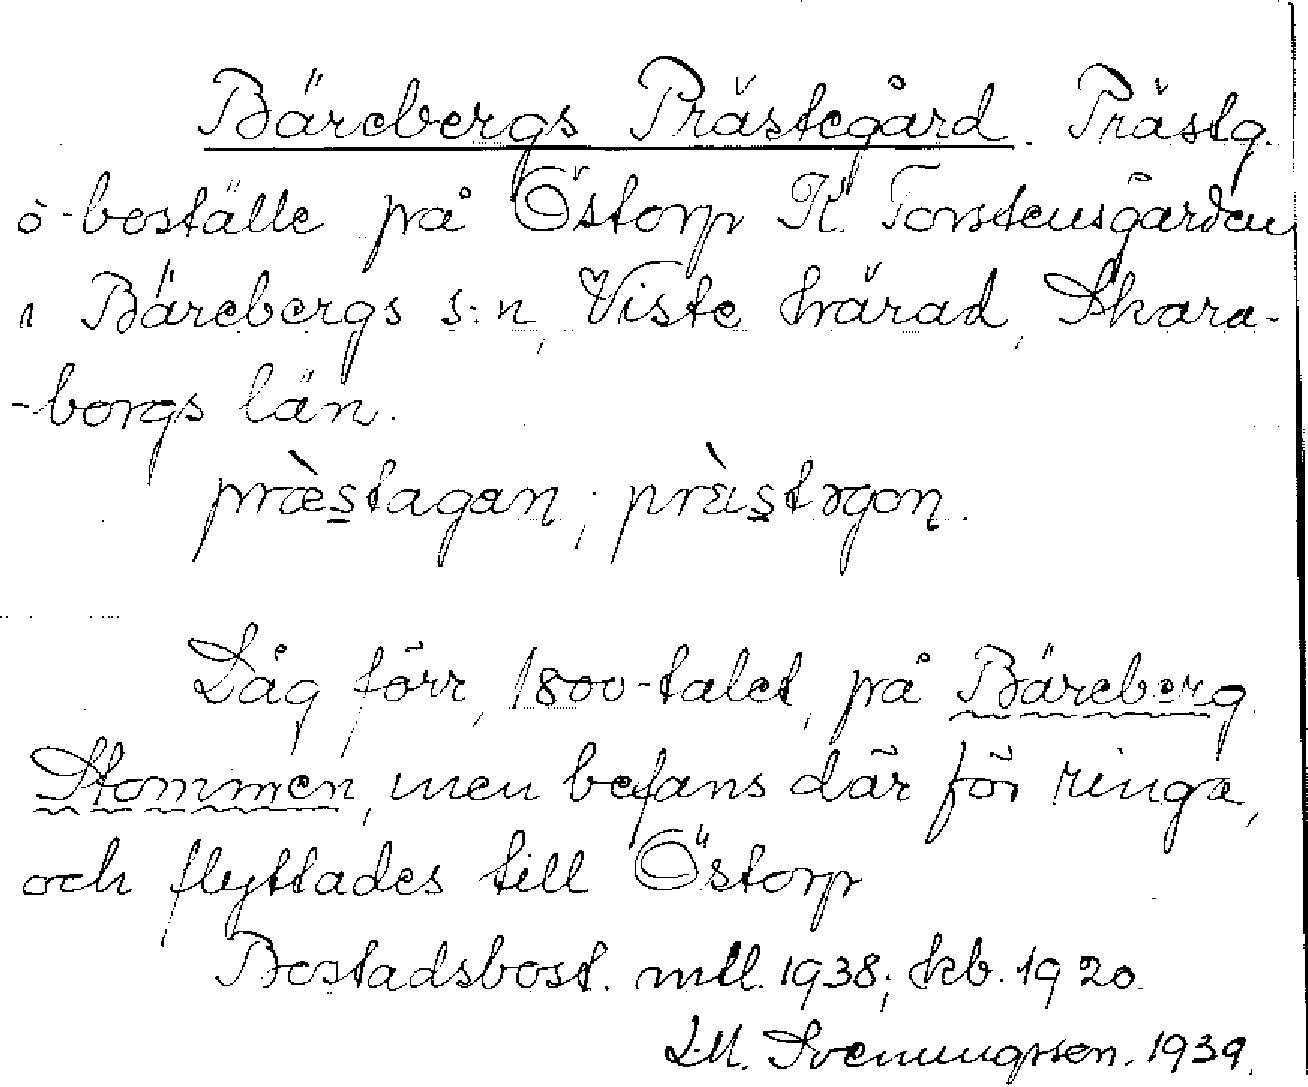 Bärebergs Prästegård. Prästg.
o-boställe på Östorp Kl. Torstensgården
i Bärebergs s:n, Viste härad, Skara-
-borgs län.
præstagaɷn; præstrgon.
Låg förr, 1800-talet, på Bäreberg
Stommen, men befans där för ringa,
och flyttades till Östorp
Bostadsbost. mtl. 1938; kb. 1920.
L.M. Svenungsson. 1939.